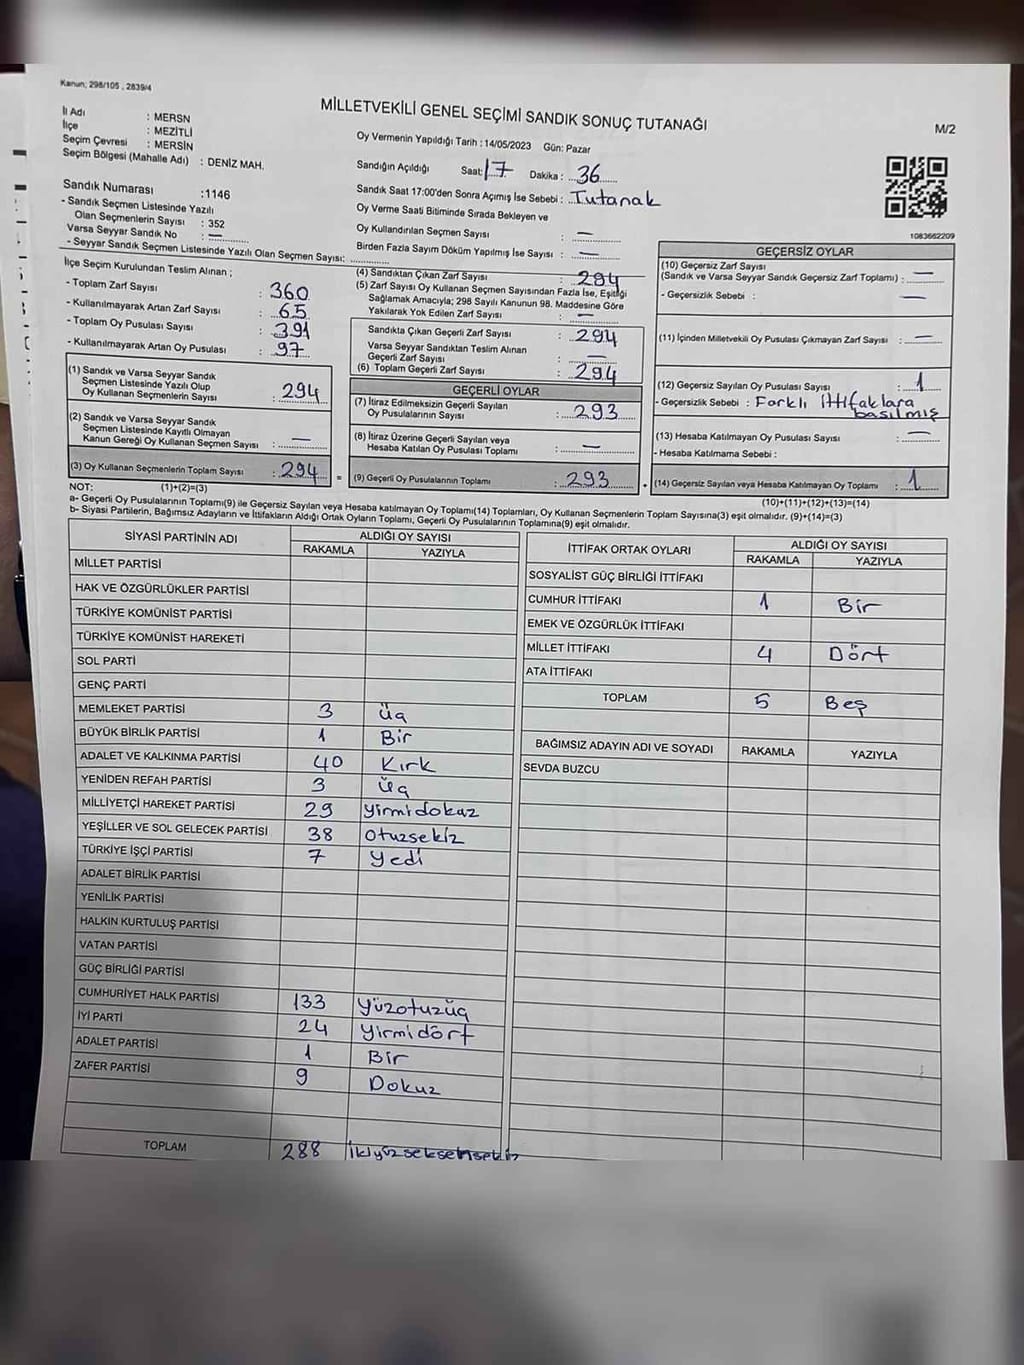 Kanun; 298/105 , 2839/4
MİLLETVEKİLİ GENEL SEÇİMİ SANDIK SONUÇ TUTANAĞI
M/2
İl Adı : MERSN
İlçe : MEZİTLİ
Seçim Çevresi : MERSİN
Seçim Bölgesi (Mahalle Adı) : DENİZ MAH.
Oy Vermenin Yapıldığı Tarih : 14/05/2023 Gün: Pazar
Sandığın Açıldığı Saat: 17 Dakika : 36
Sandık Saat 17:00'den Sonra Açımış İse Sebebi : Tutanak
Oy Verme Saati Bitiminde Sırada Bekleyen ve
Oy Kullandırılan Seçmen Sayısı : —
Birden Fazla Sayım Döküm Yapılmış İse Sayısı : —
1083662209
Sandık Numarası :1146
- Sandık Seçmen Listesinde Yazılı
Olan Seçmenlerin Sayısı : 352
Varsa Seyyar Sandık No : —
- Seyyar Sandık Seçmen Listesinde Yazılı Olan Seçmen Sayısı:
İlçe Seçim Kurulundan Teslim Alınan ;
- Toplam Zarf Sayısı : 360
- Kullanılmayarak Artan Zarf Sayısı : 65
- Toplam Oy Pusulası Sayısı : 391
- Kullanılmayarak Artan Oy Pusulası : 97
(1) Sandık ve Varsa Seyyar Sandık
Seçmen Listesinde Yazılı Olup
Oy Kullanan Seçmenlerin Sayısı : 294
(2) Sandık ve Varsa Seyyar Sandık
Seçmen Listesinde Kayıtlı Olmayan
Kanun Gereği Oy Kullanan Seçmen Sayısı : —
(3) Oy Kullanan Seçmenlerin Toplam Sayısı : 294 =
(4) Sandıktan Çıkan Zarf Sayısı : 294
(5) Zarf Sayısı Oy Kullanan Seçmen Sayısından Fazla İse, Eşitliği
Sağlamak Amacıyla; 298 Sayılı Kanunun 98. Maddesine Göre
Yakılarak Yok Edilen Zarf Sayısı : —
Sandıkta Çıkan Geçerli Zarf Sayısı : 294
Varsa Seyyar Sandıktan Teslim Alınan
Geçerli Zarf Sayısı : —
(6) Toplam Geçerli Zarf Sayısı : 294
GEÇERLİ OYLAR
(7) İtiraz Edilmeksizin Geçerli Sayılan
Oy Pusulalarının Sayısı : 293
(8) İtiraz Üzerine Geçerli Sayılan veya
Hesaba Katılan Oy Pusulası Toplamı : —
(9) Geçerli Oy Pusulalarının Toplamı : 293 +
GEÇERSİZ OYLAR
(10) Geçersiz Zarf Sayısı
(Sandık ve Varsa Seyyar Sandık Geçersiz Zarf Toplamı) : —
- Geçersizlik Sebebi : —
(11) İçinden Milletvekili Oy Pusulası Çıkmayan Zarf Sayısı : —
(12) Geçersiz Sayılan Oy Pusulası Sayısı : 1
- Geçersizlik Sebebi : Farklı ittifaklara
basılmış
(13) Hesaba Katılmayan Oy Pusulası Sayısı : —
- Hesaba Katılmama Sebebi :
(14) Geçersiz Sayılan veya Hesaba Katılmayan Oy Toplamı : 1
NOT: (1)+(2)=(3)
(10)+(11)+(12)+(13)=(14)
a- Geçerli Oy Pusulalarının Toplamı(9) ile Geçersiz Sayılan veya Hesaba katılmayan Oy Toplamı(14) Toplamları, Oy Kullanan Seçmenlerin Toplam Sayısına(3) eşit olmalıdır. (9)+(14)=(3)
b- Siyasi Partilerin, Bağımsız Adayların ve İttifakların Aldığı Ortak Oyların Toplamı, Geçerli Oy Pusulalarının Toplamına(9) eşit olmalıdır.
SİYASİ PARTİNİN ADI ALDIĞI OY SAYISI
RAKAMLA YAZIYLA
MİLLET PARTİSİ
HAK VE ÖZGÜRLÜKLER PARTİSİ
TÜRKİYE KOMÜNİST PARTİSİ
TÜRKİYE KOMÜNİST HAREKETİ
SOL PARTİ
GENÇ PARTİ
MEMLEKET PARTİSİ 3 üç
BÜYÜK BİRLİK PARTİSİ 1 Bir
ADALET VE KALKINMA PARTİSİ 40 Kırk
YENİDEN REFAH PARTİSİ 3 üç
MİLLİYETÇİ HAREKET PARTİSİ 29 yirmidokuz
YEŞİLLER VE SOL GELECEK PARTİSİ 38 otuzsekiz
TÜRKİYE İŞÇİ PARTİSİ 7 yedi
ADALET BİRLİK PARTİSİ
YENİLİK PARTİSİ
HALKIN KURTULUŞ PARTİSİ
VATAN PARTİSİ
GÜÇ BİRLİĞİ PARTİSİ
CUMHURİYET HALK PARTİSİ 133 yüzotuzüç
İYİ PARTİ 24 yirmidört
ADALET PARTİSİ 1 Bir
ZAFER PARTİSİ 9 Dokuz
TOPLAM 288 İkiyüzseksensekiz
İTTİFAK ORTAK OYLARI ALDIĞI OY SAYISI
RAKAMLA YAZIYLA
SOSYALİST GÜÇ BİRLİĞİ İTTİFAKI
CUMHUR İTTİFAKI 1 Bir
EMEK VE ÖZGÜRLÜK İTTİFAKI
MİLLET İTTİFAKI 4 Dört
ATA İTTİFAKI
TOPLAM 5 Beş
BAĞIMSIZ ADAYIN ADI VE SOYADI RAKAMLA YAZIYLA
SEVDA BUZCU